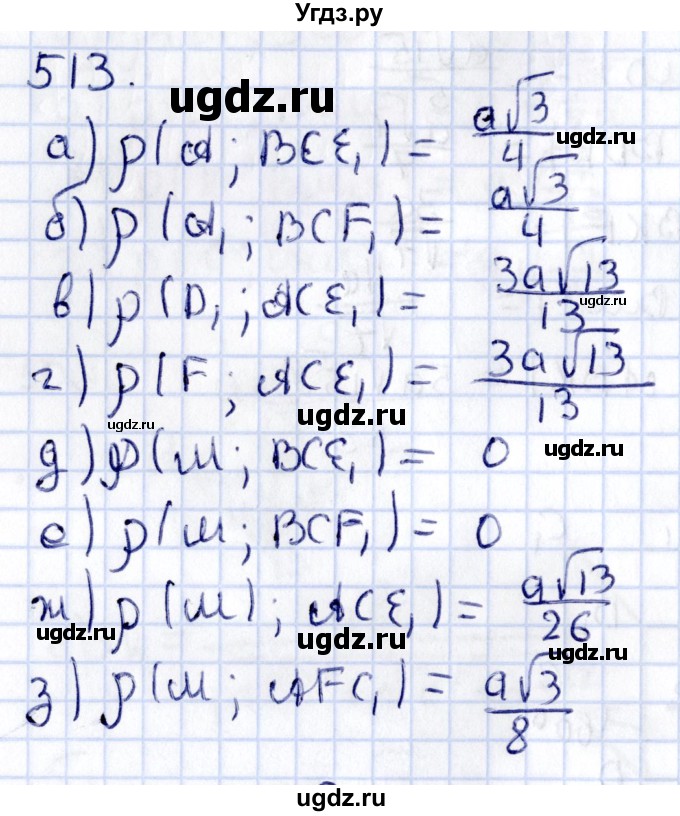 Угдз.ру
513.
ugdz.ru
а) ρ(A; BCE₁) = a√3/4
ugdz.ru
б) ρ(A₁; BCF₁) = a√3/4
в) ρ(D₁; ACE₁) = 3a√13/13
ugdz.ru
г) ρ(F; ACE₁) = 3a√13/13
ugdz.ru
ugdz.ru
д) ρ(M; BCE₁) = 0
ugdz.ru
е) ρ(M; BCF₁) = 0
ж) ρ(M); ACE₁) = a√13/26
ugdz.ru
ugdz.ru
ugdz.ru
з) ρ(M; AFC₁) = a√3/8
ugdz.ru
ugdz.ru